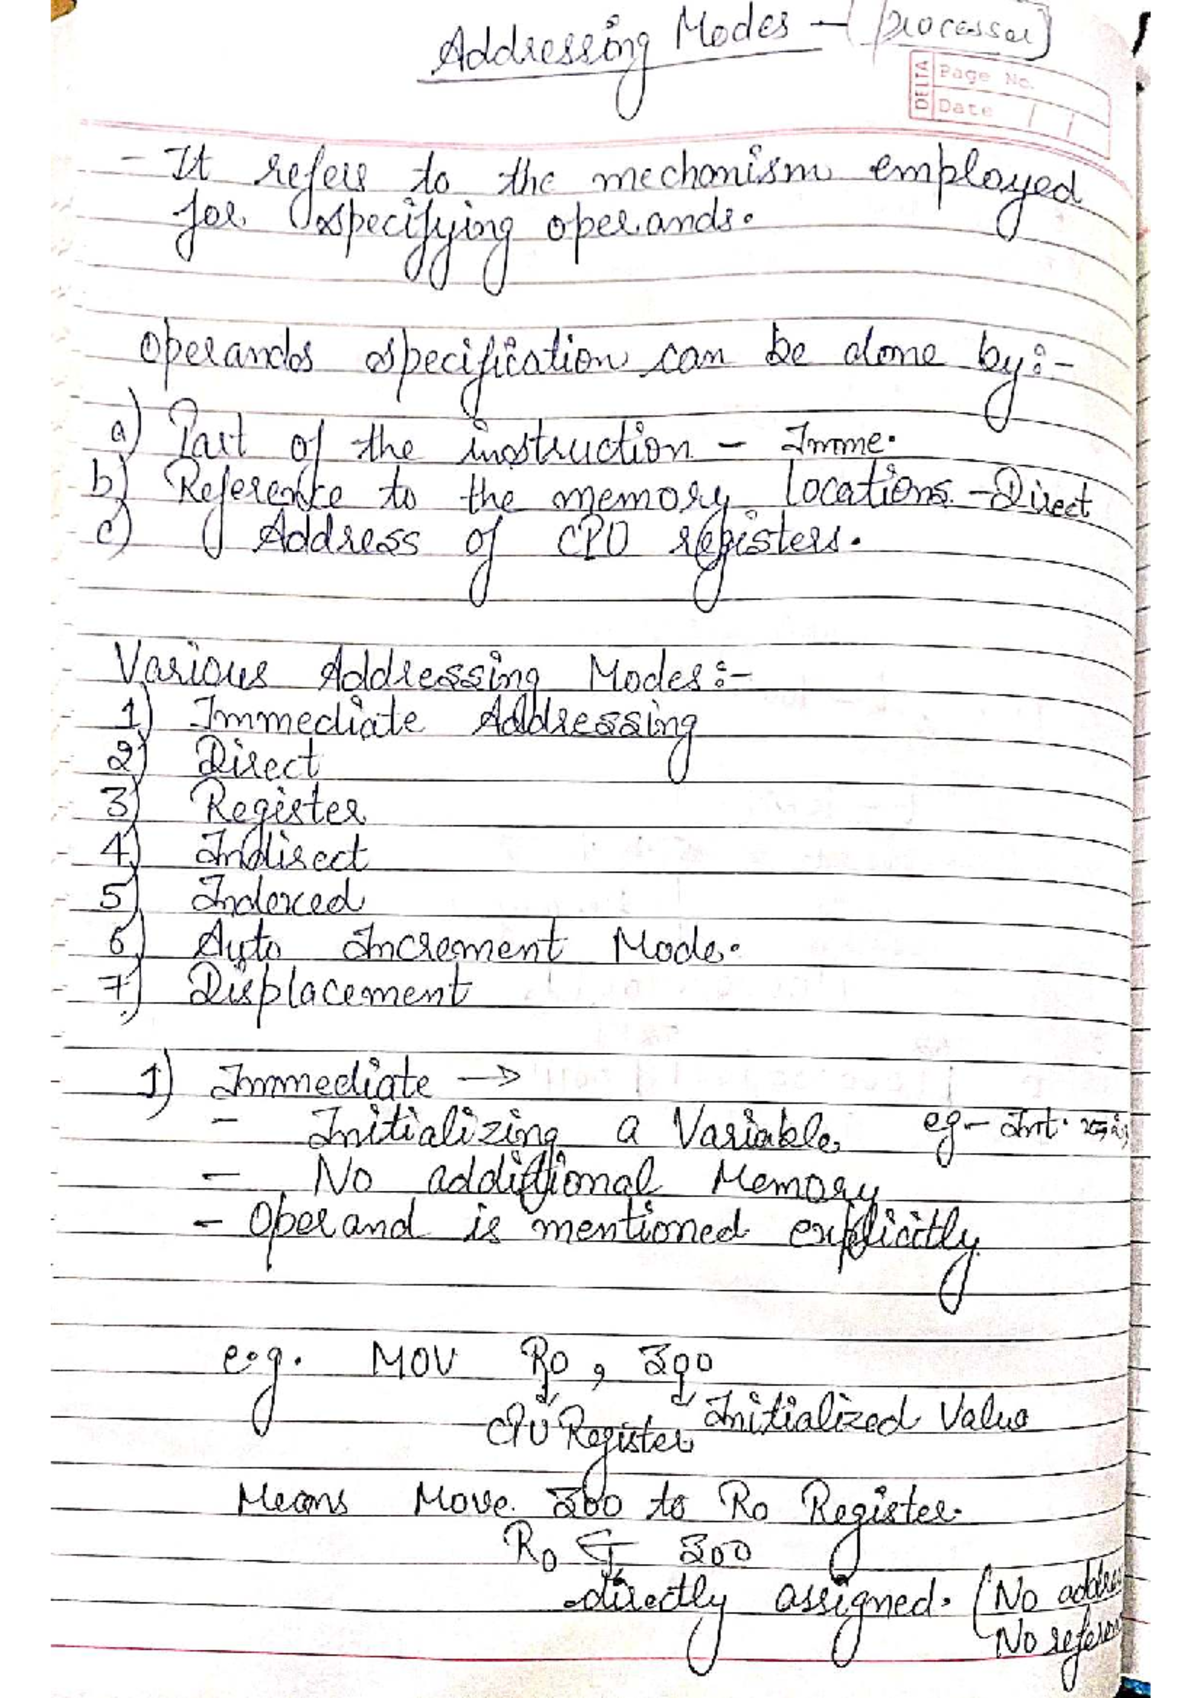 Addressing Modes - (processor)
DELTA
Page No.
Date / /
- It refers to the mechanism employed
for specifying operands.
Operands specification can be done by:-
a) Part of the instruction - Imme.
b) Reference to the memory locations - Direct
c) Address of CPU registers.
Various Addressing Modes:-
1) Immediate Addressing
2) Direct
3) Register
4) Indirect
5) Indexed
6) Auto Increment Mode.
7) Displacement
1) Immediate →
- Initializing a Variable eg - Int.
- No additional Memory
- Operand is mentioned explicitly
e.g. MOV R0, 300
CPU Register Initialized Value
Means Move 300 to R0 Register.
R0 ← 300
directly assigned. (No addres
No referen